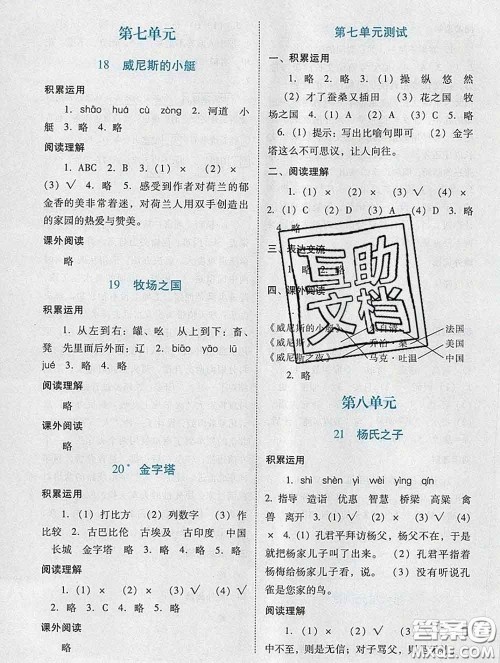 第七单元
18 威尼斯的小艇
积累运用
1. shāo huá cù zòng 2. 河道 小
艇 3. 略 4. 略
阅读理解
1. ABC 2. B 3. (1) × (2) ×
(3) √ 4. 略 5. 感受到作者对荷兰的郁
金香的美非常着迷，对荷兰人用双手创造出
的家园的热爱与赞美。
课外阅读
略
19 牧场之国
积累运用
1. 从左到右：罐、吆 从上到下：畜、
凳 先里面后外面：辽 2. biāo yāo lǜ
jué 3. 略 4. 略
阅读理解
略
课外阅读
略
20* 金字塔
积累运用
1. (1) 打比方 (2) 列数字 (3) 作
比较 2. 古巴比伦 古埃及 古印度 中国
长城 金字塔 3. (1) × (2) × (3) √
阅读理解
1. (1) × (2) × (3) √ (4) √
2. 略 3. 略
课外阅读
略
第七单元测试
一、积累运用
1. 略 2. 略 3. (1) 操 纵 悠 然
(2) 才了蚕桑又插田 (3) 花之国 牧
场之国 4. (1) A (2) C 5. 略
6. (1) 提示：写出比喻句即可 (2) 金字
塔这么不可思议，让人向往。
二、阅读理解
1. (1) × (2) × (3) √ 2. 略
3. (1) C (2) D (3) A (4) B 4. 略
5. 略
三、表达交流
1. 略 2. 略
四、课外阅读
《威尼斯的小艇》 朱自清 法国
《威尼斯》 乔治·桑 美国
《威尼斯之夜》 马克·吐温 中国
2. 略
互助
文档
第八单元
21 杨氏之子
积累运用
1. shì shén yì wèi yìng qín
2. 指导 造诣 优惠 智慧 桥梁 高粱 禽
兽 离开 3. (1) 孔君平拜访杨父，杨父不在，于
是就把杨家儿子叫了出来。 (2) 孔君平指着
杨梅给杨家儿子看，说：“这是你家的水果。”
杨家儿子马上回答说：“我可没听说孔
雀是您家的鸟。
阅读理解
1. (1) × (2) √ (3) √ 2.
中不至，则是无信；对子骂父，